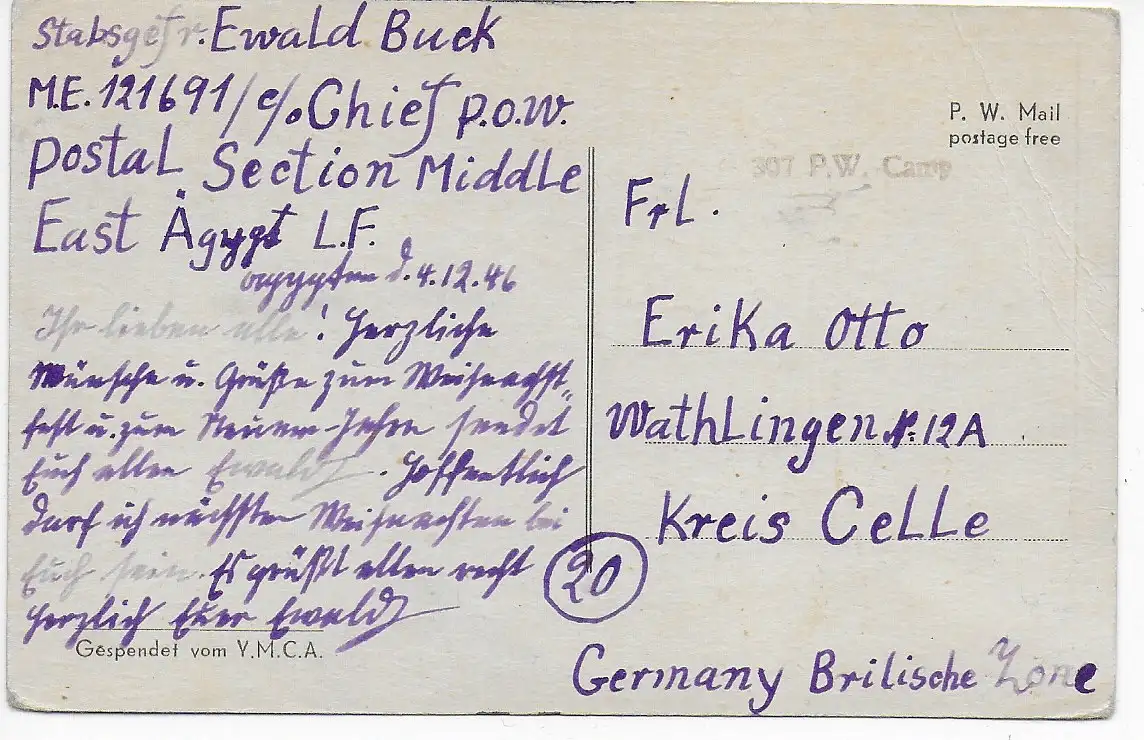 Stabsgefr. Ewald Buck
M.E. 121691/c/o. Chief P.O.W.
Postal Section Middle
East Ägypt L.F.
Ägypten d. 4.12.46
Ihr lieben alle! Herzliche
Wünsche u. Grüße zum Weihnachst-
fest u. zum Neuem-Jahre sendet
Euch allen Ewald. Hoffentlich
darf ich nächsten Weihnachten bei
Euch sein. Es grüßt allen recht
herzlich Euer Ewald
Gespendet vom Y.M.C.A.
P. W. Mail
postage free
307 P.W. Camp
Frl.
Erika Otto
Wathlingen N: 12A
Kreis Celle
20
Germany Brilische Zone